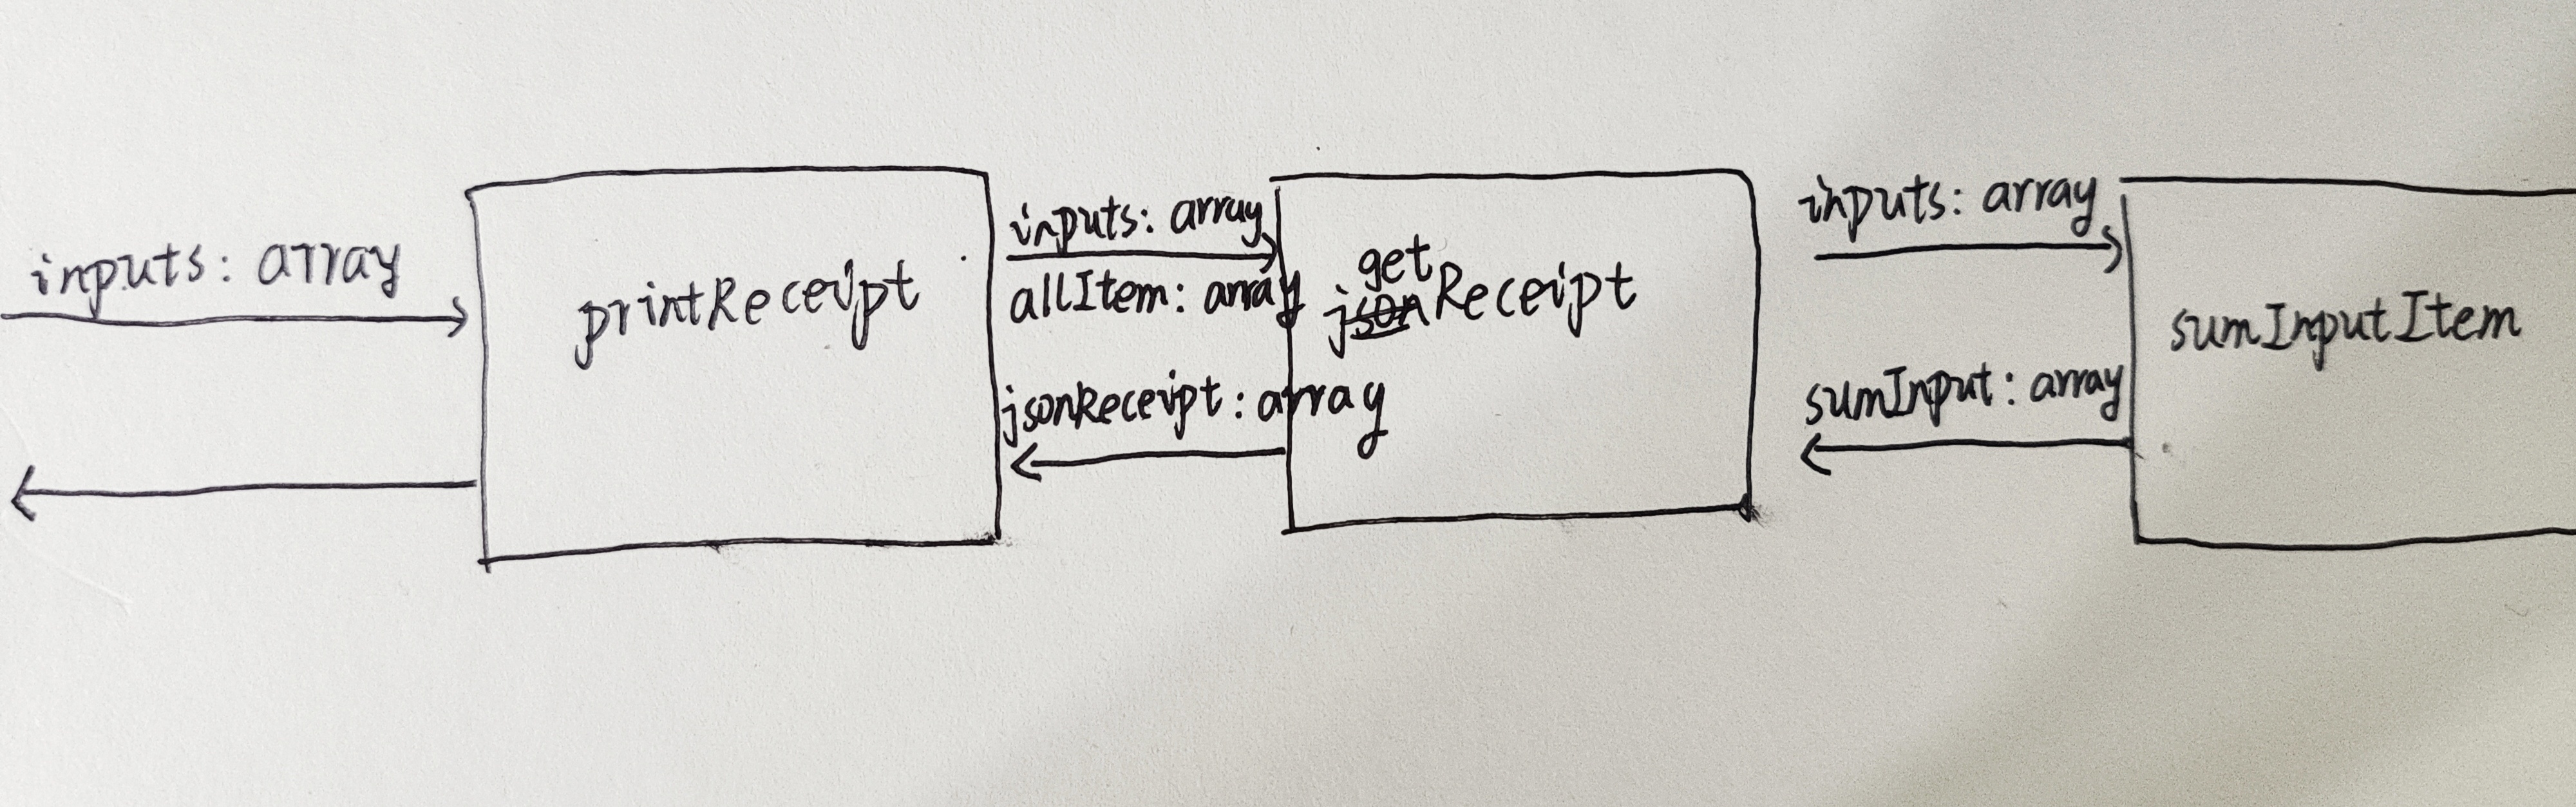 inputs: array
printReceipt
inputs: array
allItem: array
jsonReceipt: array
get
jsonReceipt
inputs: array
sumInput: array
sumInputItem